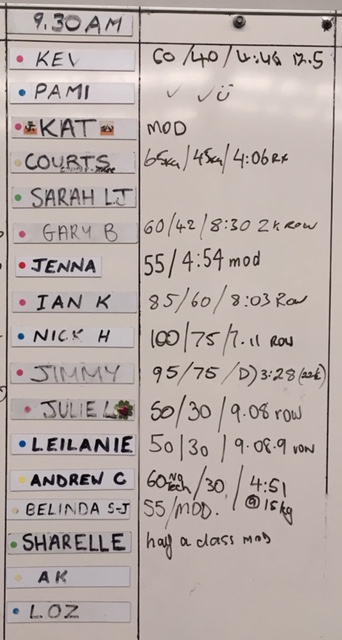 9.30AM
KEV 60/40/4:46 12.5
PAMI ✓ ✓✓ü
KAT MOD
COURTS 65kg/45kg/4:06 RX
SARAH LJ
GARY B 60/42/8:30 2K ROW
JENNA 55/4:54 mod
IAN K 85/60/8:03 ROW
NICK H 100/75/7.11 ROW
JIMMY 95/75/D)3:28(22k)
JULIE L 50/30/9.08 row
LEILANIE 50/30/9.08.9 row
ANDREW C 60 No Tech/30/4:51 @15kg
BELINDA S-J 55/MOD.
SHARELLE half a class mod
AK
LOZ